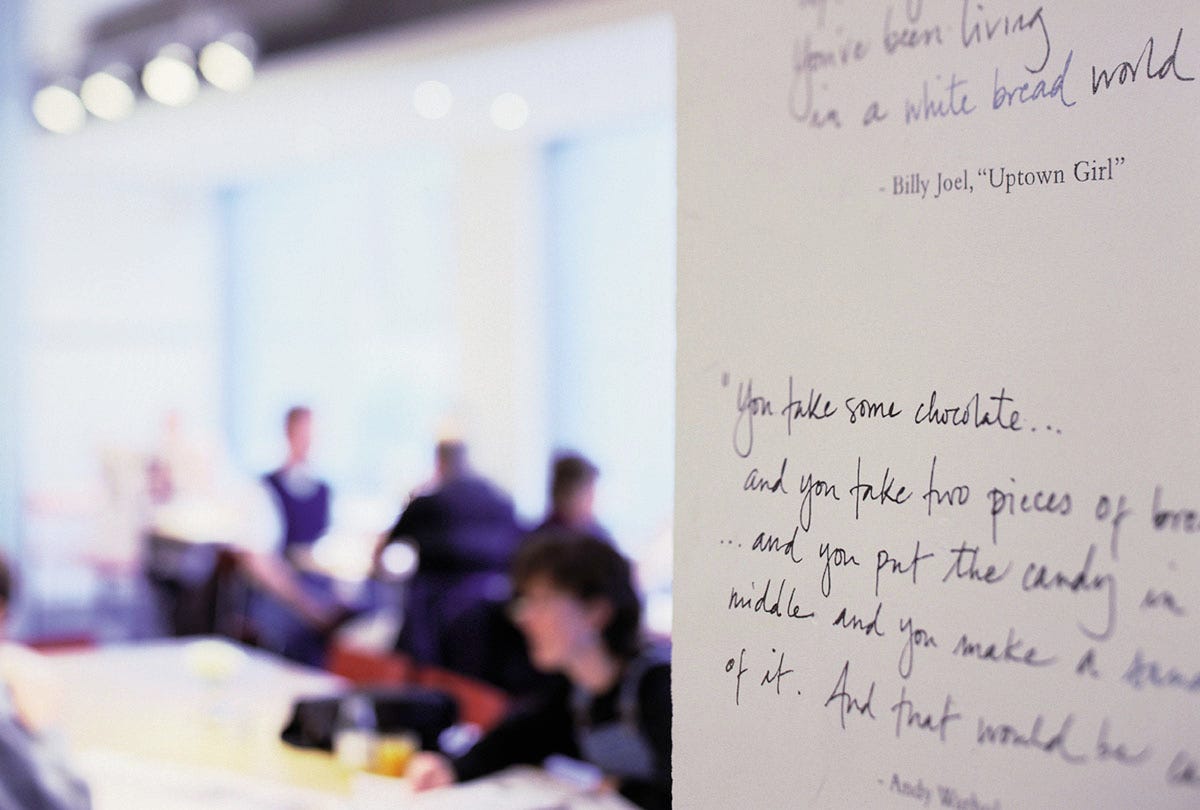 You've been living
in a white bread world
- Billy Joel, "Uptown Girl"
"You take some chocolate...
and you take two pieces of
...and you put the candy in
middle and you make a
of it. And that would be
- Andy Warhol